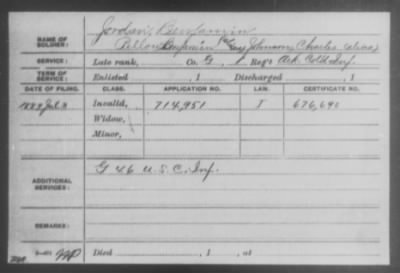 Jordan, Benjamin
NAME OF SOLDIER:
Benjamin Johnson, Charles (alias)
SERVICE: Late rank, Co. G, 1 Reg't Ark. Cold Inf.
TERM OF SERVICE: Enlisted , 1 Discharged , 1
DATE OF FILING. CLASS. APPLICATION NO. LAW. CERTIFICATE NO.
Invalid, 714,951 I 676,690
Widow,
Minor,
ADDITIONAL SERVICES: G 46 U.S.C. Inf.
REMARKS:
Died , 1 , at